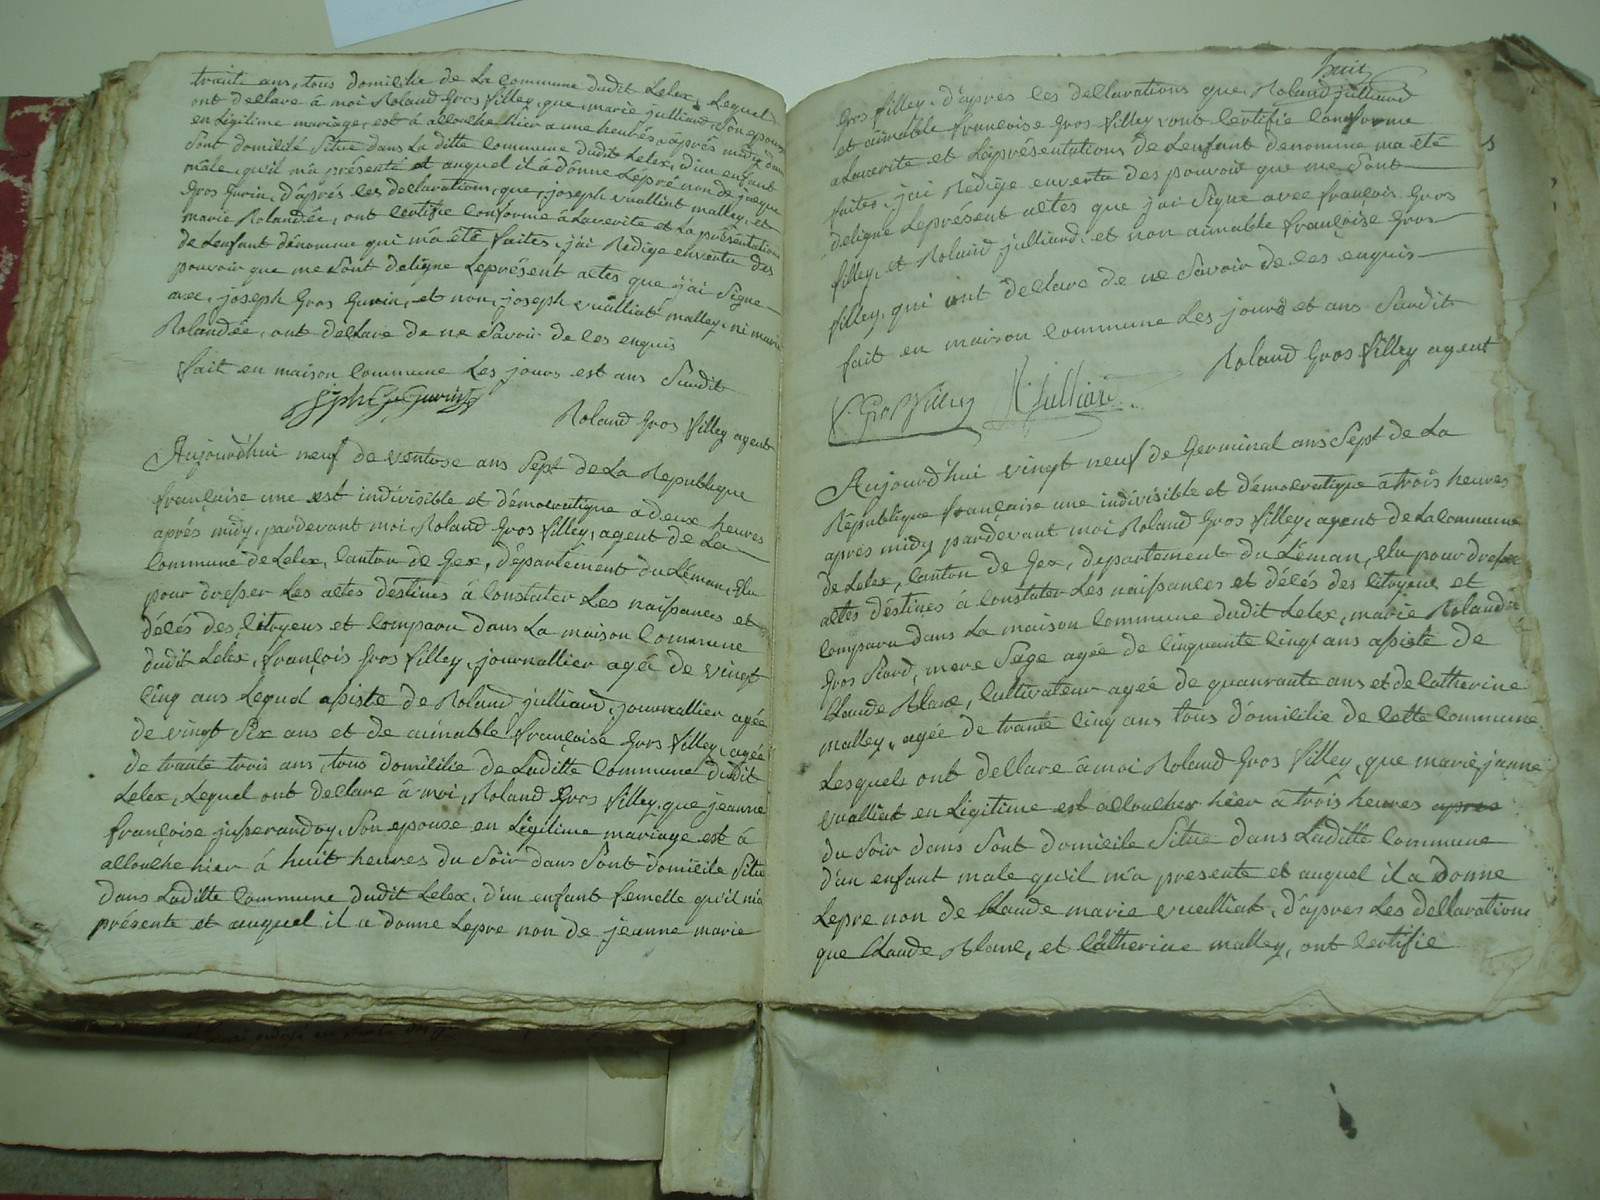 traite ans, tous domicilie de La Commune dudit Lelex, Lequel
ont declare à moi Roland Gros Filley, que marie julliard Son epouse
en Legitime mariage, est à allouche hier a une heures après midy dans
Sont domicilé Situe dans La ditte Commune dudit Lelex, d'un enfant
mâle, qu'il m'a présenté et auquel il à donne Lepré non de jacque
Gros Gurin, d'après les declarations, que, joseph vualliat malley, et
marie Rolandée, ont Certifie Conforme à Laverite et La présentations
de Lenfant dénomme qui m'a été faites, j'ai Redige envertu des
pouvoir que me Sont deligne Leprésent actes que j'ai Signe
avec, joseph Gros Gurin, et non, joseph vualliat malley, ni marie
Rolandée, ont declare de ne Savoir de ces enquis
fait en maison Commune Les jours est ans Susdit
jph G Gurin
Roland Gros Filley agent
Aujourd'hui neuf de ventose ans Sept de La Republique
française une est indivisible et démocratique à deux heures
après midy, pardevant moi, Roland Gros Filley, agent de La
Commune de Lelex, Canton de Gex, département du Léman, Elu
pour dresser Les actes destines à Constater Les naissances et
décés des Citoyens et Comparu dans La maison Commune
dudit Lelex, François Gros Filley, journallier agé de vingt
Cinq ans Lequel assiste de Roland julliard, journallier agée
de vingt Six ans et de aimable françoise Gros Filley, agée
de trante trois ans, tous domicilie de Laditte Commune dudit
Lelex, Lequel ont declare à moi, Roland Gros Filley, que jeanne
françoise jusserandoy, Son epouse en Légitime mariage est à
allouche hier à huit heures du Soir dans Sont domicile Situe
dans Laditte Commune dudit Lelex, d'un enfant femelle qu'il m'a
présente et auquel il a donne Lepre non de jeanne marie
huit
Gros Filley, d'apres les declarations que, Roland julliard
et aimable françoise Gros Filley, ont Certifie Conforme
a Laverite et Leprésentations de Lenfant denomme ma été
faites, j'ai Redige envertu des pouvoir que me Sont
deligne Leprésent actes que j'ai Signe avec françois Gros
filley, et Roland julliard, et non aimable françoise Gros
filley, qui ont declare de ne Savoir de ces enquis
fait en maison Commune Les jours et ans Susdit
Roland Gros Filley agent
f. Gros Filley R. Julliard
Aujourd'hui vingt neuf de Germinal ans Sept de La
République française une indivisible et démocratique à trois heures
apres midy pardevant moi Roland Gros Filley, agent de La Commune
de Lelex, Canton de Gex, departement du Léman, Elu pour dresser
actes déstines à Constater Les naissances et décés des Citoyens et
Comparu dans La maison Commune dudit Lelex, marie Rolandée
Gros Piard, mere Sage agée de Cinquante Cinq ans assiste de
Claude Blanc, Cultivateur agée de quanrante ans et de Catherine
malley, agée de trante Cinq ans tous domicilie de Cette Commune
Lesquels ont declare à moi Roland Gros Filley, que marie janne
vualliat en Ligitime est allouchez hier à trois heures apres
du Soir dans Sont domicile Situe dans Laditte Commune
d'un enfant male qu'il m'a presente et auquel il a donne
Lepre non de Claude marie vualliat, d'apres Les declarations
que Claude Blanc, et Catherine malley, ont Certifie